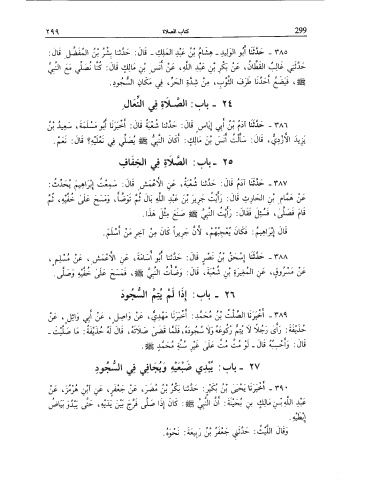 299
كتاب الصلاة
٢٩٩
٣٨٥ - حَدَّثَنَا أَبُو الوَلِيدِ، هِشَامُ بْنُ عَبْدِ المَلِكِ، قَالَ: حَدَّثَنَا بِشْرُ بْنُ المُفَضَّلِ قَالَ:
حَدَّثَنِي غَالِبٌ القَطَّانُ، عَنْ بَكْرِ بْنِ عَبْدِ اللهِ، عَنْ أَنَسِ بْنِ مَالِكٍ قَالَ: كُنَّا نُصَلِّي مَعَ النَّبِيِّ
ﷺ، فَيَضَعُ أَحَدُنَا طَرَفَ الثَّوْبِ، مِنْ شِدَّةِ الحَرِّ، فِي مَكَانِ السُّجُودِ.
٢٤ - باب: الصَّلَاةِ فِي النِّعَالِ
٣٨٦ - حَدَّثَنَا آدَمُ بْنُ أَبِي إِيَاسٍ قَالَ: حَدَّثَنَا شُعْبَةُ قَالَ: أَخْبَرَنَا أَبُو مَسْلَمَةَ، سَعِيدُ بْنُ
يَزِيدَ الأَزْدِيُّ، قَالَ: سَأَلْتُ أَنَسَ بْنَ مَالِكٍ: أَكَانَ النَّبِيُّ ﷺ يُصَلِّي فِي نَعْلَيْهِ؟ قَالَ: نَعَمْ.
٢٥ - باب: الصَّلَاةِ فِي الخِفَافِ
٣٨٧ - حَدَّثَنَا آدَمُ قَالَ: حَدَّثَنَا شُعْبَةُ، عَنِ الأَعْمَشِ قَالَ: سَمِعْتُ إِبْرَاهِيمَ يُحَدِّثُ:
عَنْ هَمَّامِ بْنِ الحَارِثِ قَالَ: رَأَيْتُ جَرِيرَ بْنَ عَبْدِ اللهِ بَالَ ثُمَّ تَوَضَّأَ، وَمَسَحَ عَلَى خُفَّيْهِ، ثُمَّ
قَامَ فَصَلَّى، فَسُئِلَ فَقَالَ: رَأَيْتُ النَّبِيَّ ﷺ صَنَعَ مِثْلَ هَذَا.
قَالَ إِبْرَاهِيمُ: فَكَانَ يُعْجِبُهُمْ، لِأَنَّ جَرِيرًا كَانَ مِنْ آخِرِ مَنْ أَسْلَمَ.
٣٨٨ - حَدَّثَنَا إِسْحَقُ بْنُ نَصْرٍ قَالَ: حَدَّثَنَا أَبُو أُسَامَةَ، عَنِ الأَعْمَشِ، عَنْ مُسْلِمٍ،
عَنْ مَسْرُوقٍ، عَنِ المُغِيرَةِ بْنِ شُعْبَةَ، قَالَ: وَضَّأْتُ النَّبِيَّ ﷺ، فَمَسَحَ عَلَى خُفَّيْهِ وَصَلَّى.
٢٦ - باب: إِذَا لَمْ يُتِمَّ السُّجُودَ
٣٨٩ - أَخْبَرَنَا الصَّلْتُ بْنُ مُحَمَّدٍ: أَخْبَرَنَا مَهْدِيٌّ، عَنْ وَاصِلٍ، عَنْ أَبِي وَائِلٍ، عَنْ
حُذَيْفَةَ: رَأَى رَجُلًا لَا يُتِمُّ رُكُوعَهُ وَلَا سُجُودَهُ، فَلَمَّا قَضَى صَلَاتَهُ، قَالَ لَهُ حُذَيْفَةُ: مَا صَلَّيْتَ -
قَالَ: وَأَحْسِبُهُ قَالَ - لَوْ مُتَّ مُتَّ عَلَى غَيْرِ سُنَّةِ مُحَمَّدٍ ﷺ.
٢٧ - باب: يُبْدِي ضَبْعَيْهِ وَيُجَافِي فِي السُّجُودِ
٣٩٠ - أَخْبَرَنَا يَحْيَى بْنُ بُكَيْرٍ: حَدَّثَنَا بَكْرُ بْنُ مُضَرَ، عَنْ جَعْفَرٍ، عَنِ ابْنِ هُرْمُزَ، عَنْ
عَبْدِ اللهِ بْنِ مَالِكٍ ابْنِ بُحَيْنَةَ: أَنَّ النَّبِيَّ ﷺ: كَانَ إِذَا صَلَّى فَرَّجَ بَيْنَ يَدَيْهِ، حَتَّى يَبْدُوَ بَيَاضُ
إِبْطَيْهِ.
وَقَالَ اللَّيْثُ: حَدَّثَنِي جَعْفَرُ بْنُ رَبِيعَةَ: نَحْوَهُ.